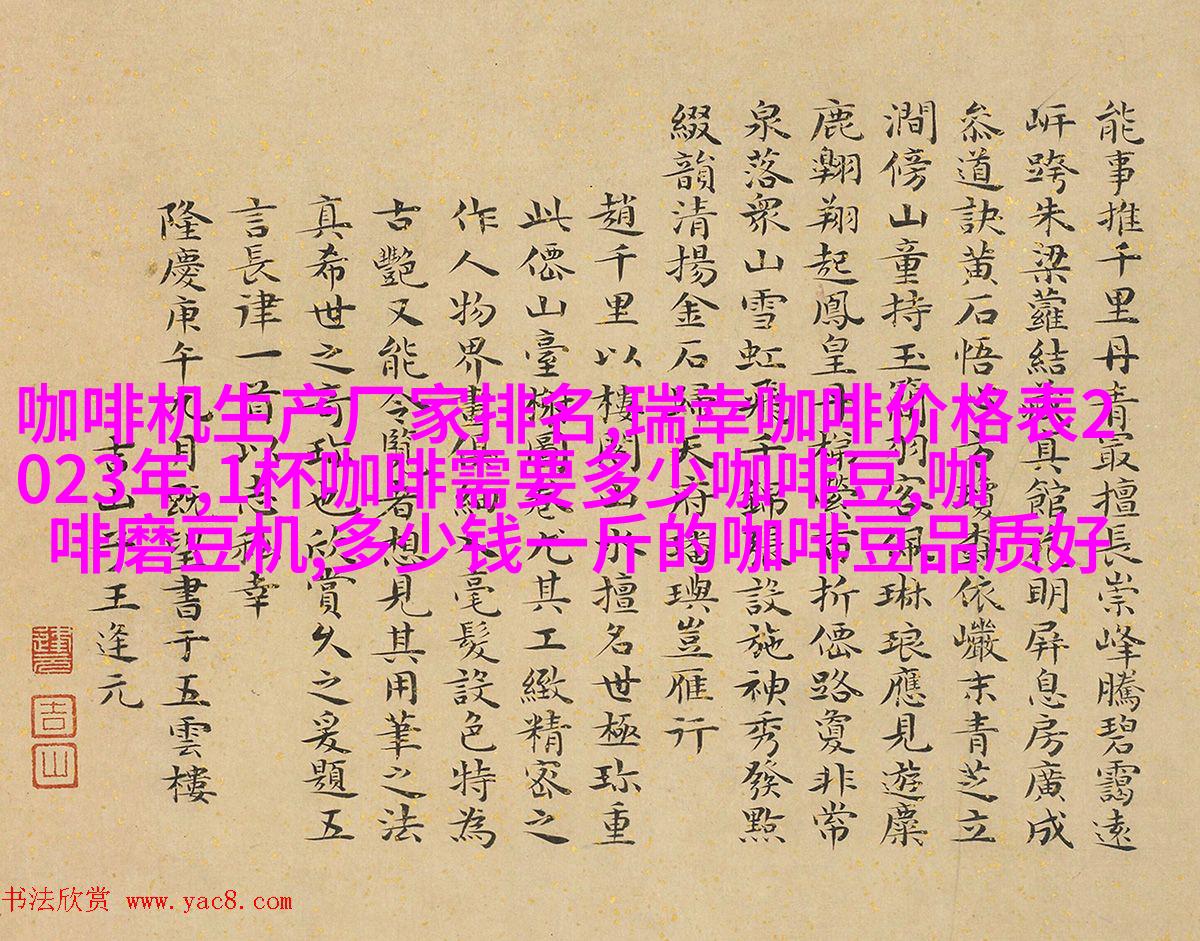 能事推千里丹青冣擅長崇峰騰碧靄遠
岍跨朱梁蘿結真館明屏息房廣成
叅道訣黄石悟方瓊依巘末青芝立
澗傍山童持玉琳琅應見遊麋
鹿翱翔起鳳皇丹折僊路敻非常
泉落衆山雪虹飛千設施神秀發點
綴韻清揚金石歸天府璠璵豈雁行
趙千里以樓閣山水擅名世極珎重
此僊山臺榭卷尤其工緻精密之
作人物界畫細毫髮設色特為
古艷又能令覽者想見其用筆之法
真希世之奇珎也賞久之爰題五
言長律一首以幸
隆慶庚午九月既望書于五雲樓
吉山王逢元
吉山
咖啡机生产厂家排名,瑞幸咖啡价格表2
023年,1杯咖啡需要多少咖啡豆,咖
啡磨豆机,多少钱一斤的咖啡豆品质好
书法欣赏 www.yac8.com